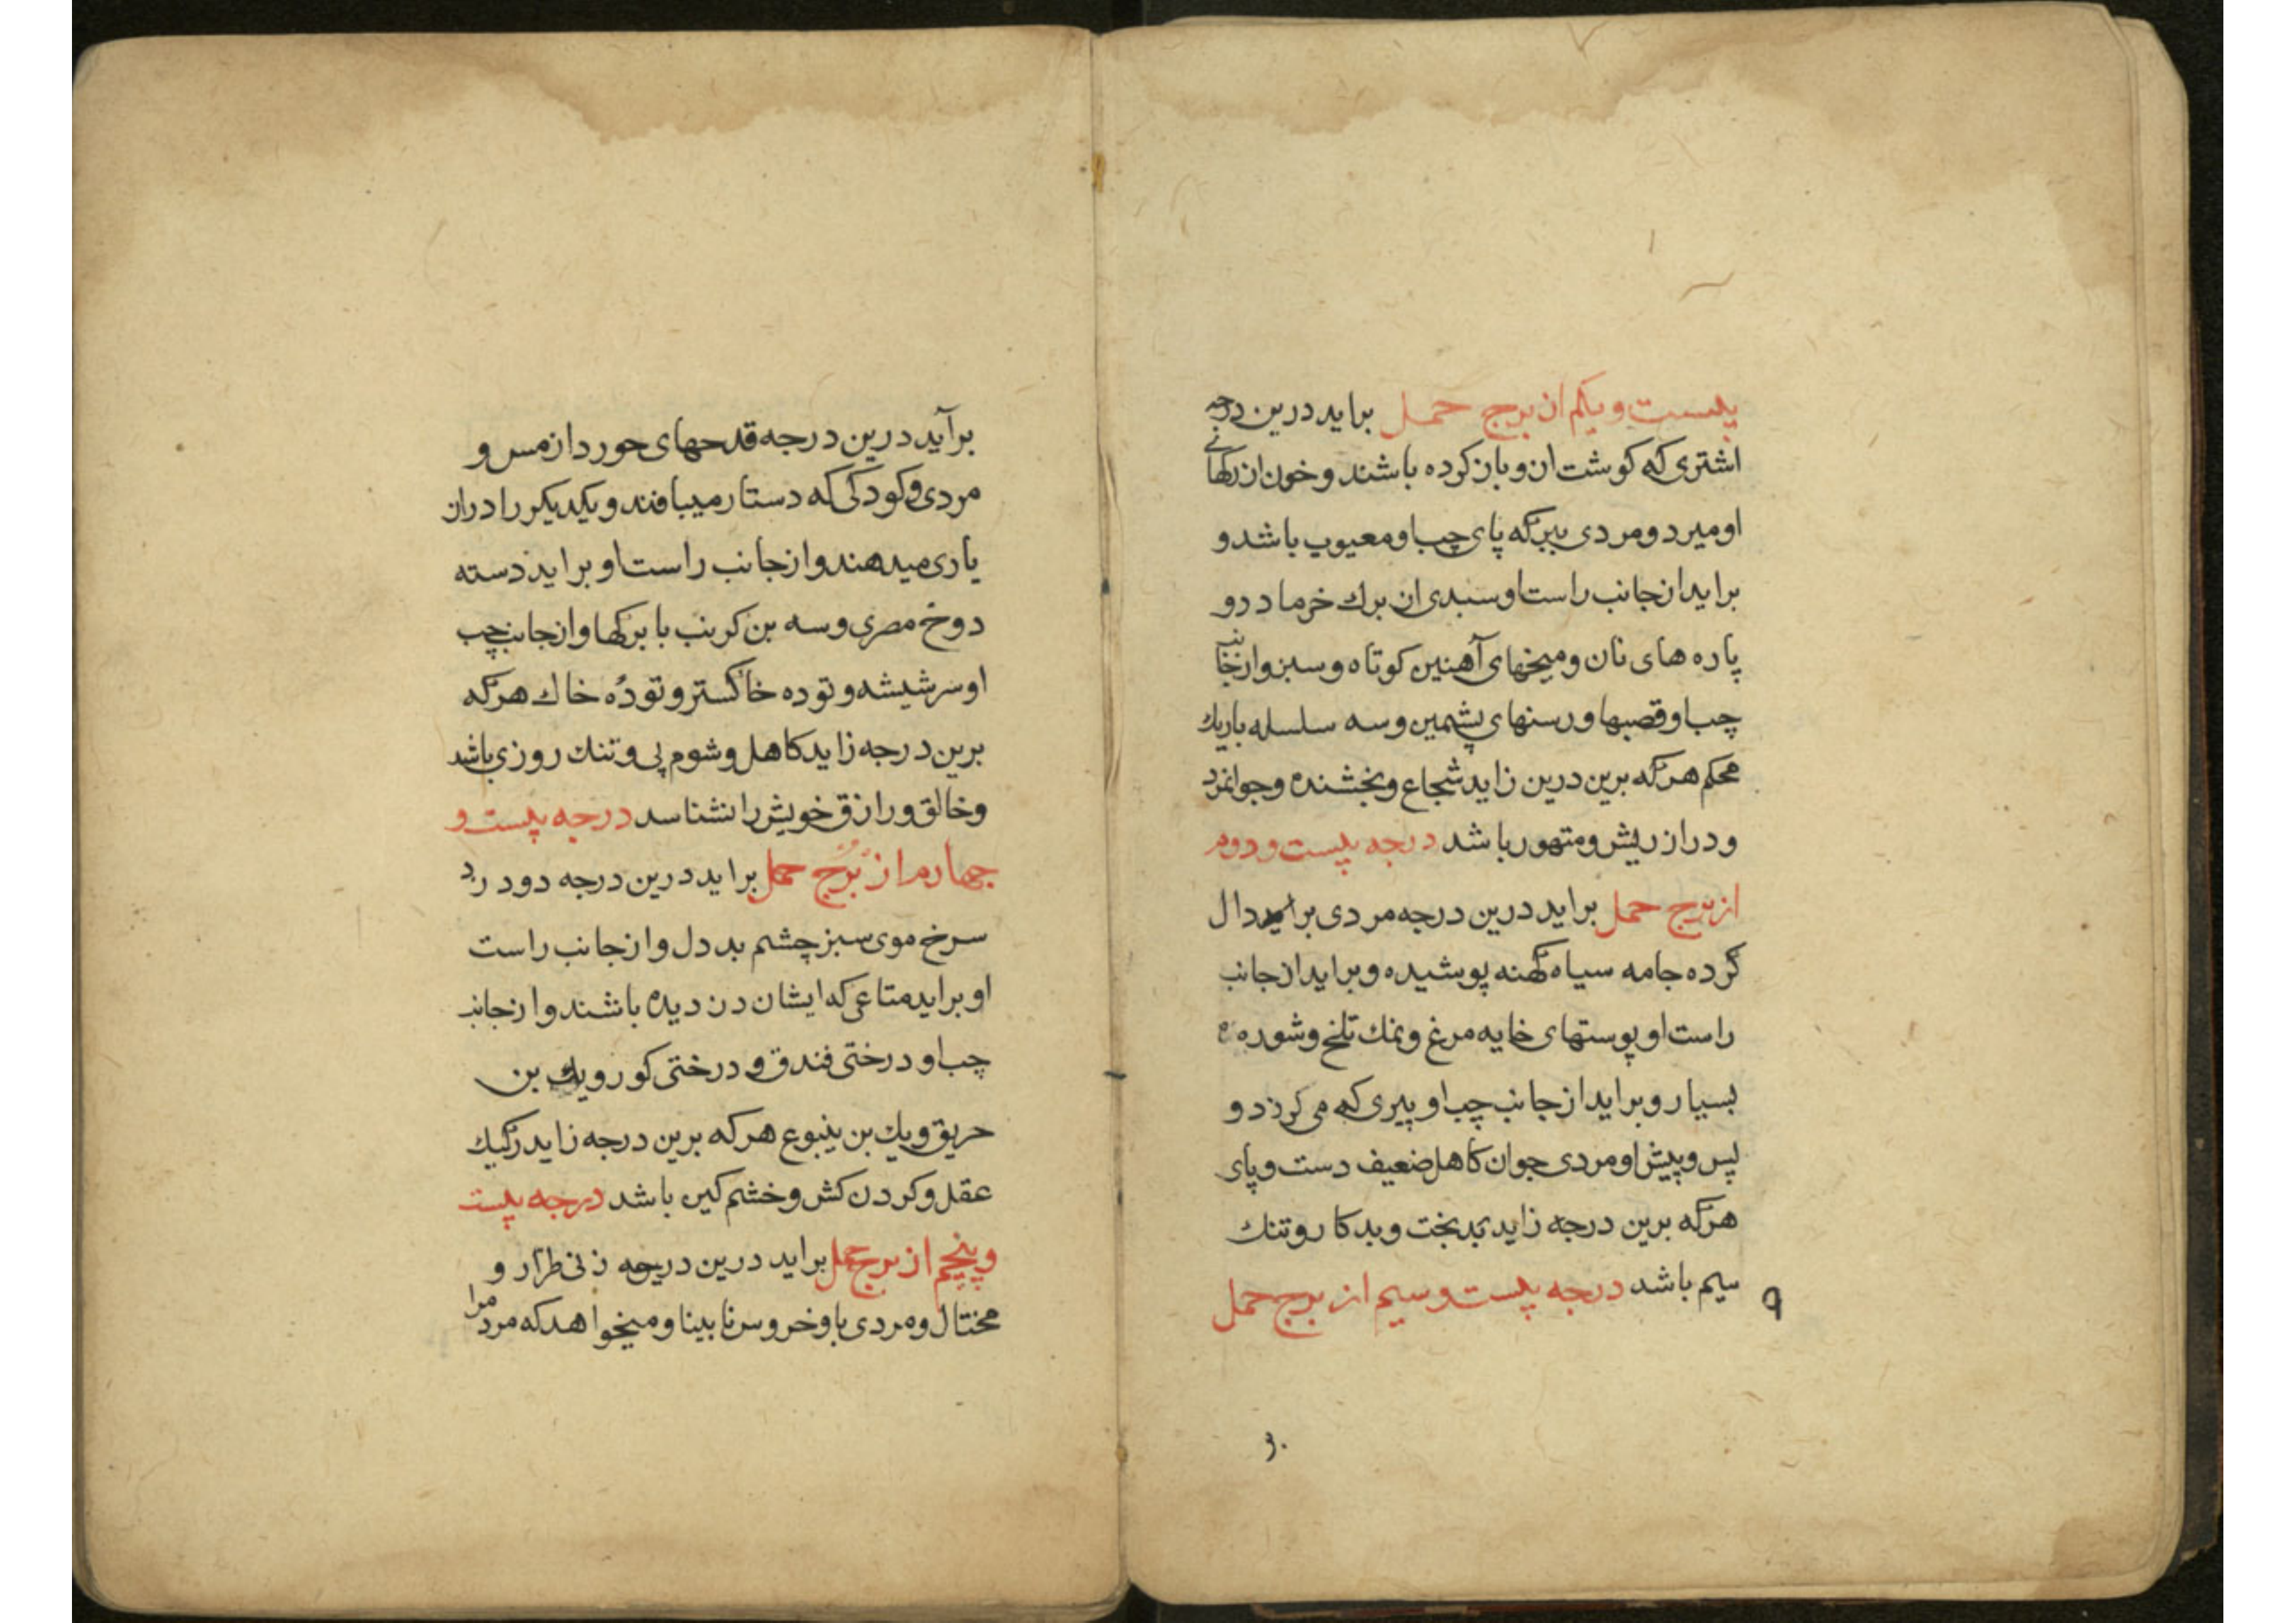 بیست و یکم از برج حمل براید درین درجه
اشتری که کوشت ازو باز کرده باشند و خون از رکهائی
او میرد و مردی ببر که پای چب او معیوب باشد و
براید از جانب راست او سبدی از برك خرما درو
پاره های نان و میخهای آهنین کوتاه و سبز و از جانب
چب او قصبها و رسنهای پشمین و سه سلسله باریك
محکم هر که برین درین زاید شجاع و بخشنده و جوانمرد
و دراز ریش و متهور باشد درجه بیست و دوم
از برج حمل براید درین درجه مردی دال
کرده جامه سیاه کهنه پوشیده و براید از جانب
راست او پوستهای خایه مرغ و نمك تلخ و شوره
بسیار و براید از جانب چب او پیری که می کرزد و
پس و پیش او مردی جوان کاهل ضعیف دست و پای
هر که برین درجه زاید بدبخت و بدکار و تنك
سیم باشد درجه بیست و سیم از برج حمل
۹
برآید درین درجه قدحهای خورد از مس و
مردی و کودکی که دستار میبافند و یکدیکر را دران
یاری میدهند و از جانب راست او براید دسته
دوخ مصری و سه بن کرنب با برکها و از جانب چب
او سر شیشه و توده خاکستر و تودهٔ خاك هر که
برین درجه زاید کاهل و شوم پی و تنك روزی باشد
و خالق و رازق خویش را نشناسد درجه بیست و
چهارم از برج حمل براید درین درجه دو درد
سرخ موی سبز چشم بد دل و از جانب راست
او براید متاعی که ایشان دزدیده باشند و از جانب
چب او درختی فندق و درختی کوز و یك بن
حریق و یك بن ینبوع هر که برین درجه زاید رکیك
عقل و کردن کش و خشم کین باشد درجه بیست
و پنجم از برج حمل براید درین درجه زنی طرار و
محتال و مردی با و خروس نابینا و میخواهد که مرد مرا